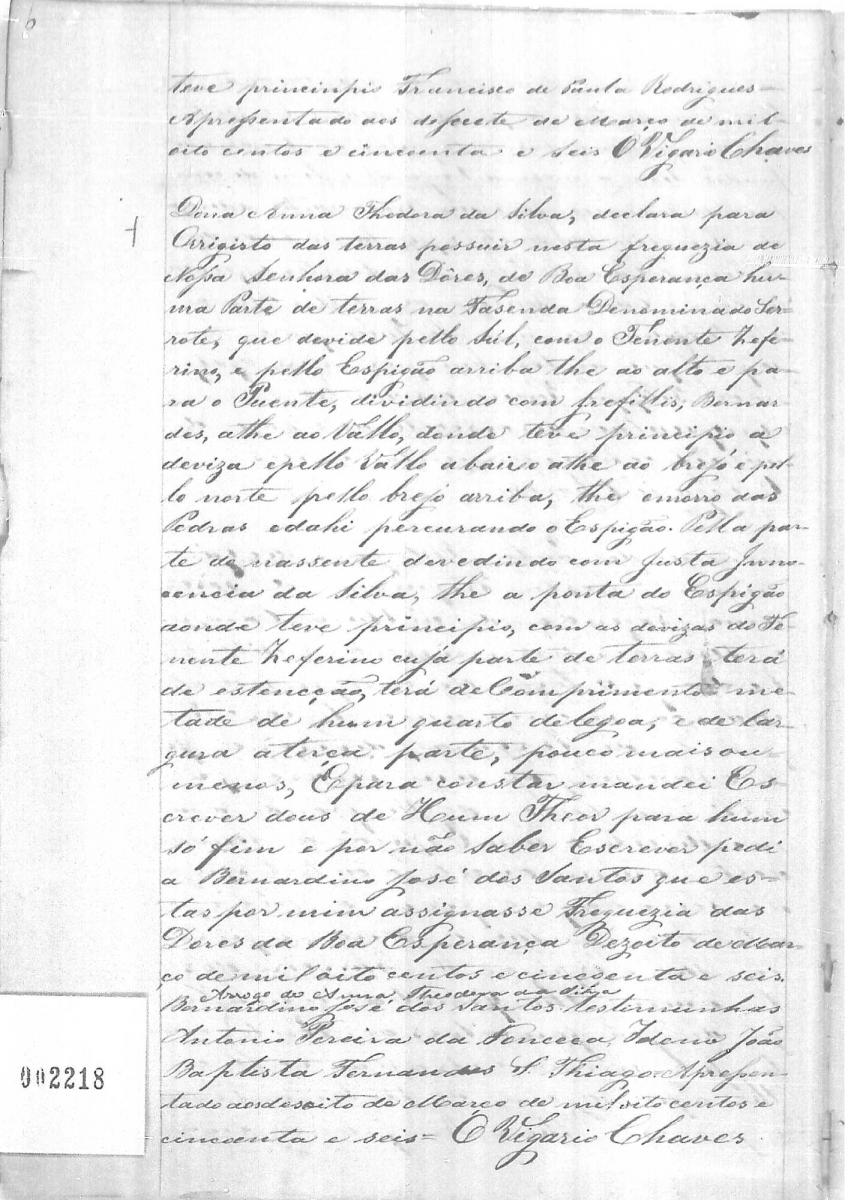 6
teve principio Francisco de Paula Rodrigues=
Apresentado aos desecete de Março de mil
oito centos e cincoenta e seis O Vigario Chaves
Dona Anna Theodora da Silva, declara para
Orrigisto das terras possuir nesta freguezia de
Nossa Senhora das Dôres, de Boa Esperança hu-
ma Parte de terras na Fasenda Denominado Ser-
rote, que devide pello Sul, com o Tenente Zefe-
rino, e pello Espigão arriba the ao alto e pa-
ra o Puente, dividindo com Bernar-
des, athe ao Vallo, donde teve principio a
deviza e pello Vallo abaixo athe ao brejo e pel-
lo norte pello brejo arriba, the o morro das
Pedras e dahi percurando o Espigão. Pella par-
te do nassente devedindo com Justa Inno-
cencia da Silva, the a ponta do Espigão
donde teve principio, com as devizas do Te-
nente Zeferino cuja parte de terras terá
de estencção, terá de Comprimento me-
tade de hum quarto de legoa, e de lar-
gura a terça parte, pouco mais ou
menos, E para constar mandei Es-
crever dous de Hum Theor para hum
só fim e por não saber Escrever pedi
a Bernardino José dos Santos que es-
tas por mim assignasse Freguezia das
Dores da Boa Esperança Dezoito de Mar-
ço de mil oito centos e cincoenta e seis.
Arrogo de Anna Theodora da Silva
Bernardino José dos Santos testimunhas
Antonio Pereira da Fonceca, Idem João
Baptista Fernandes S. Thiago= Apresen-
tado aos desoito de Março de mil oito centos e
cincoenta e seis= O Vigario Chaves
002218